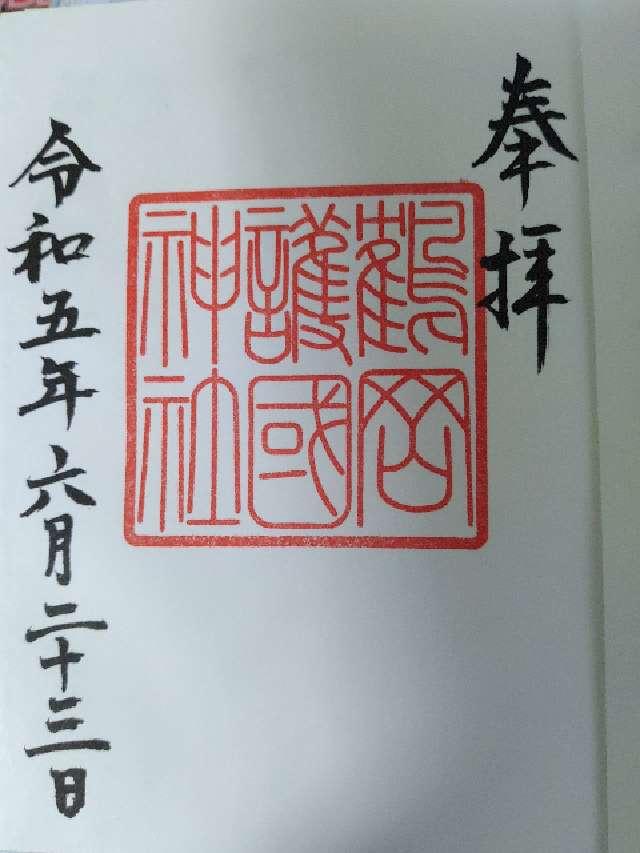 奉拝
鶴岡
護國
神社
令和五年六月二十三日